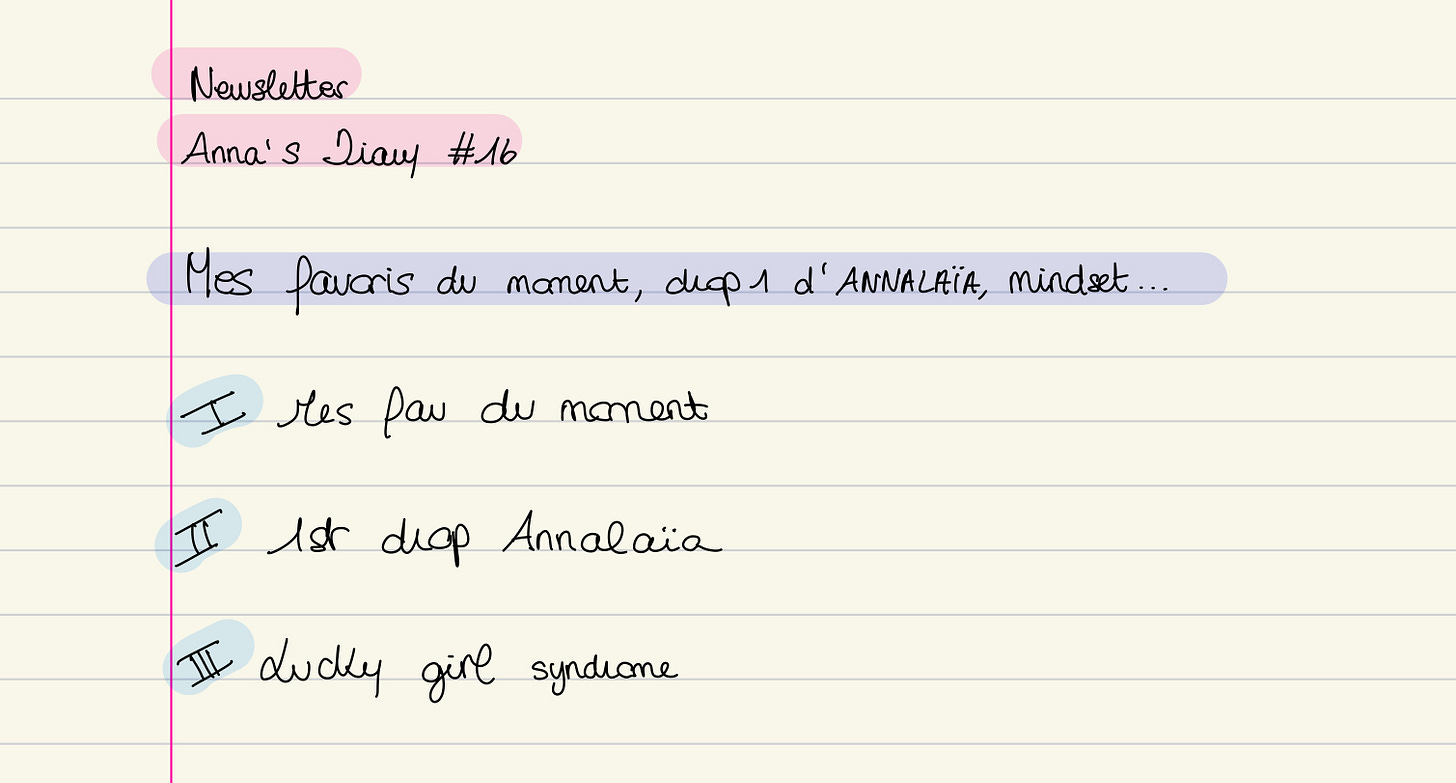 Newsletter
Anna's Diary #16
Mes favoris du moment, drop 1 d'ANNALAÏA, mindset...
I Mes fav du moment
II 1st drop Annalaïa
III Lucky girl syndrome